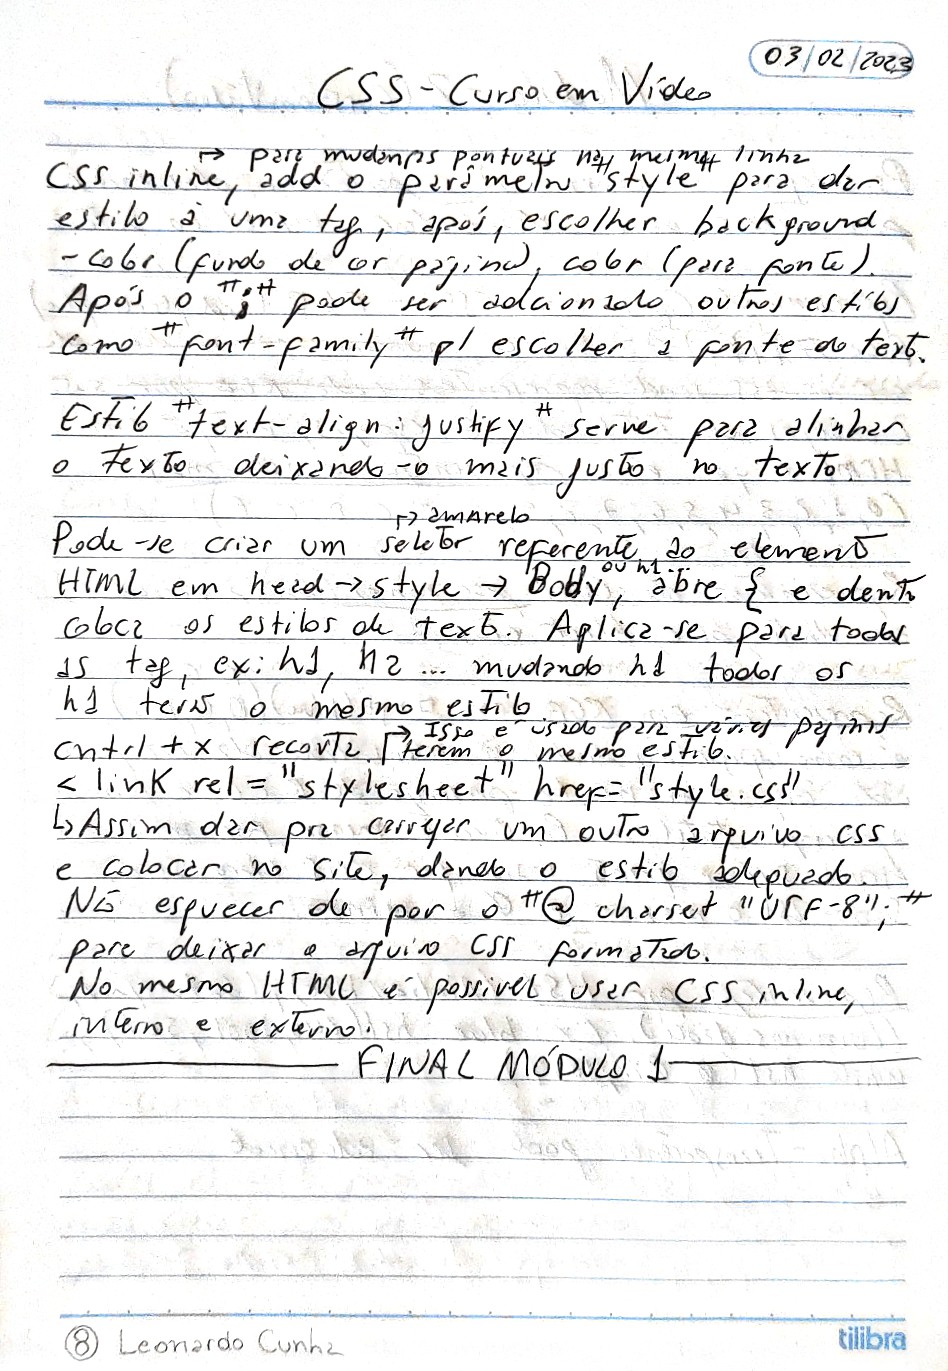 03/02/2023
CSS - Curso em Vídeo
↱ para mudanças pontuais na mesma linha
CSS inline, add o parâmetro "style" para dar
estilo à uma tag, após, escolher background
-color (fundo de cor página), color (para fonte).
Após o ";" pode ser adcionado outros estilos
como "font-family" p/ escolher a fonte do texto.
Estilo "text-align: justify" serve para alinhar
o texto deixando-o mais justo no texto.
↱ amarelo
Pode-se criar um seletor referente ao elemento
ou h1...
HTML em head → style → Body, abre { e dentro
coloca os estilos de texto. Aplica-se para todas
as tag, ex: h1, h2 ... mudando h1 todos os
h1 terão o mesmo estilo
↱ Isso é usado para várias páginas
cntrl + x recorta. terem o mesmo estilo.
< link rel = "stylesheet" href= "style.css"
↳ Assim dar pra carregar um outro arquivo css
e colocar no site, dando o estilo adequado.
Não esquecer de por o "@ charset "UTF-8";"
para deixar o arquivo CSS formatado.
No mesmo HTML é possivel usar CSS inline,
interno e externo.
FINAL MÓDULO 1
8 Leonardo Cunha
tilibra